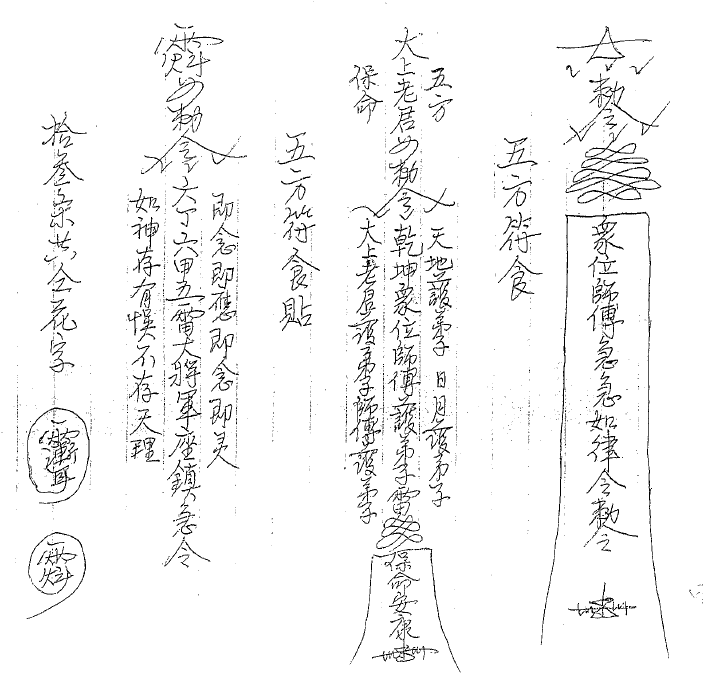 勅令
眾位師傅急急如律令勅令
五方符食
五方
大上老君勅令乾坤眾位師傅護弟子雷
保命
天地護弟子日月護弟子
大上老君護弟子師傅護弟子
保命安康
五方符食貼
勅令六丁六甲五雷大将軍座鎮急令
即念即應即念即灵
如神存有悞不存天理
拾叁条共仝花字